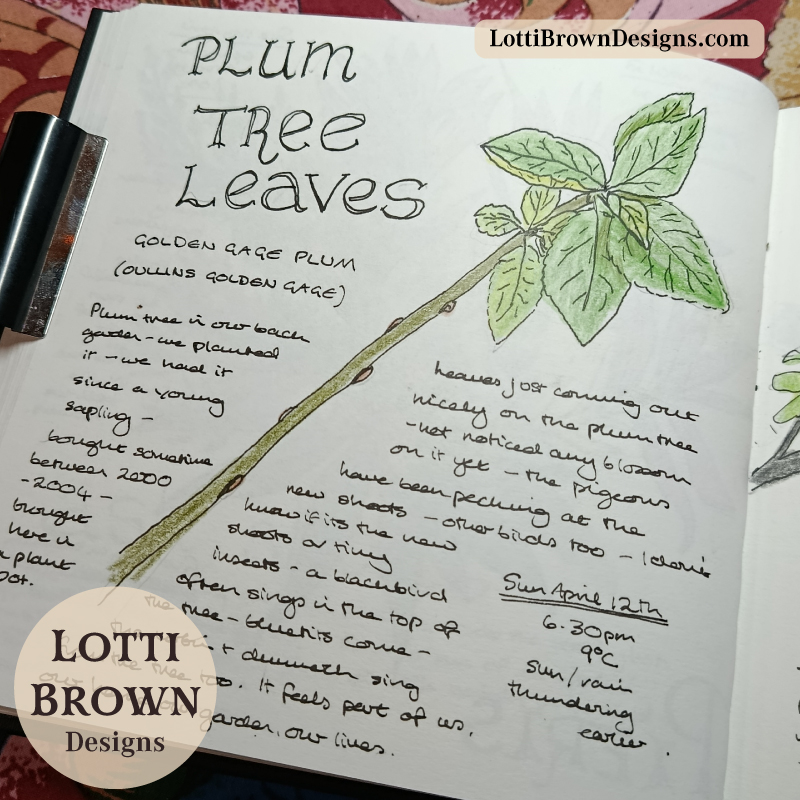 LottiBrownDesigns.com
PLUM
TREE
LEAVES
GOLDEN GAGE PLUM
(OULLINS GOLDEN GAGE)
Plum tree in our back
garden - we planted
it - we had it
since a young
sapling -
bought sometime
between 2000
- 2004 -
brought
here in
a plant
pot.
Leaves just coming out
nicely on the plum tree
- not noticed any blossom
on it yet - the pigeons
have been pecking at the
new shoots - other birds too - I don't
know if its the new
shoots or tiny
insects - a blackbird
often sings in the top of
the tree - bluetits come -
+ dunnock sing
the tree too. It feels part of us,
garden, our lives.
Sun April 12th
6.30pm
9°C
sun/rain
thundering
earlier.
LOTTI
BROWN
Designs